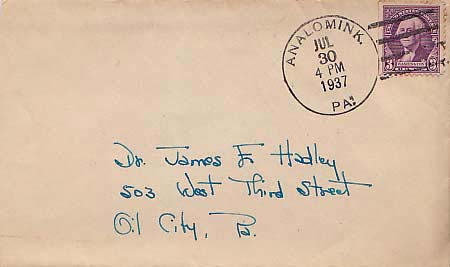 ANALOMINK.
JUL
30
4 PM
1937
PA.
3
3
Dr. James F. Hadley
503 West Third Street
Oil City, Pa.